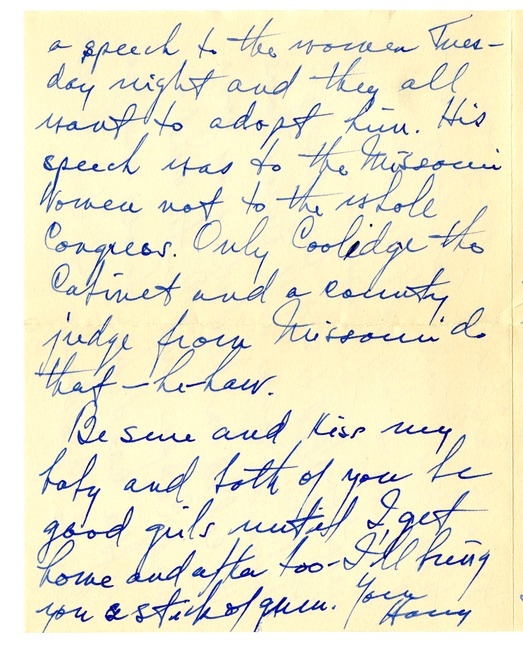 a speech to the women Tues-
day night and they all
want to adopt him. His
speech was to the Missouri
Women not to the whole
Congress. Only Coolidge the
Cabinet and a county
judge from Missouri do
that - he-haw.
Be sure and kiss my
baby and both of you be
good girls until I get
home and after too - I'll bring
you a stick of gum. Your
Harry